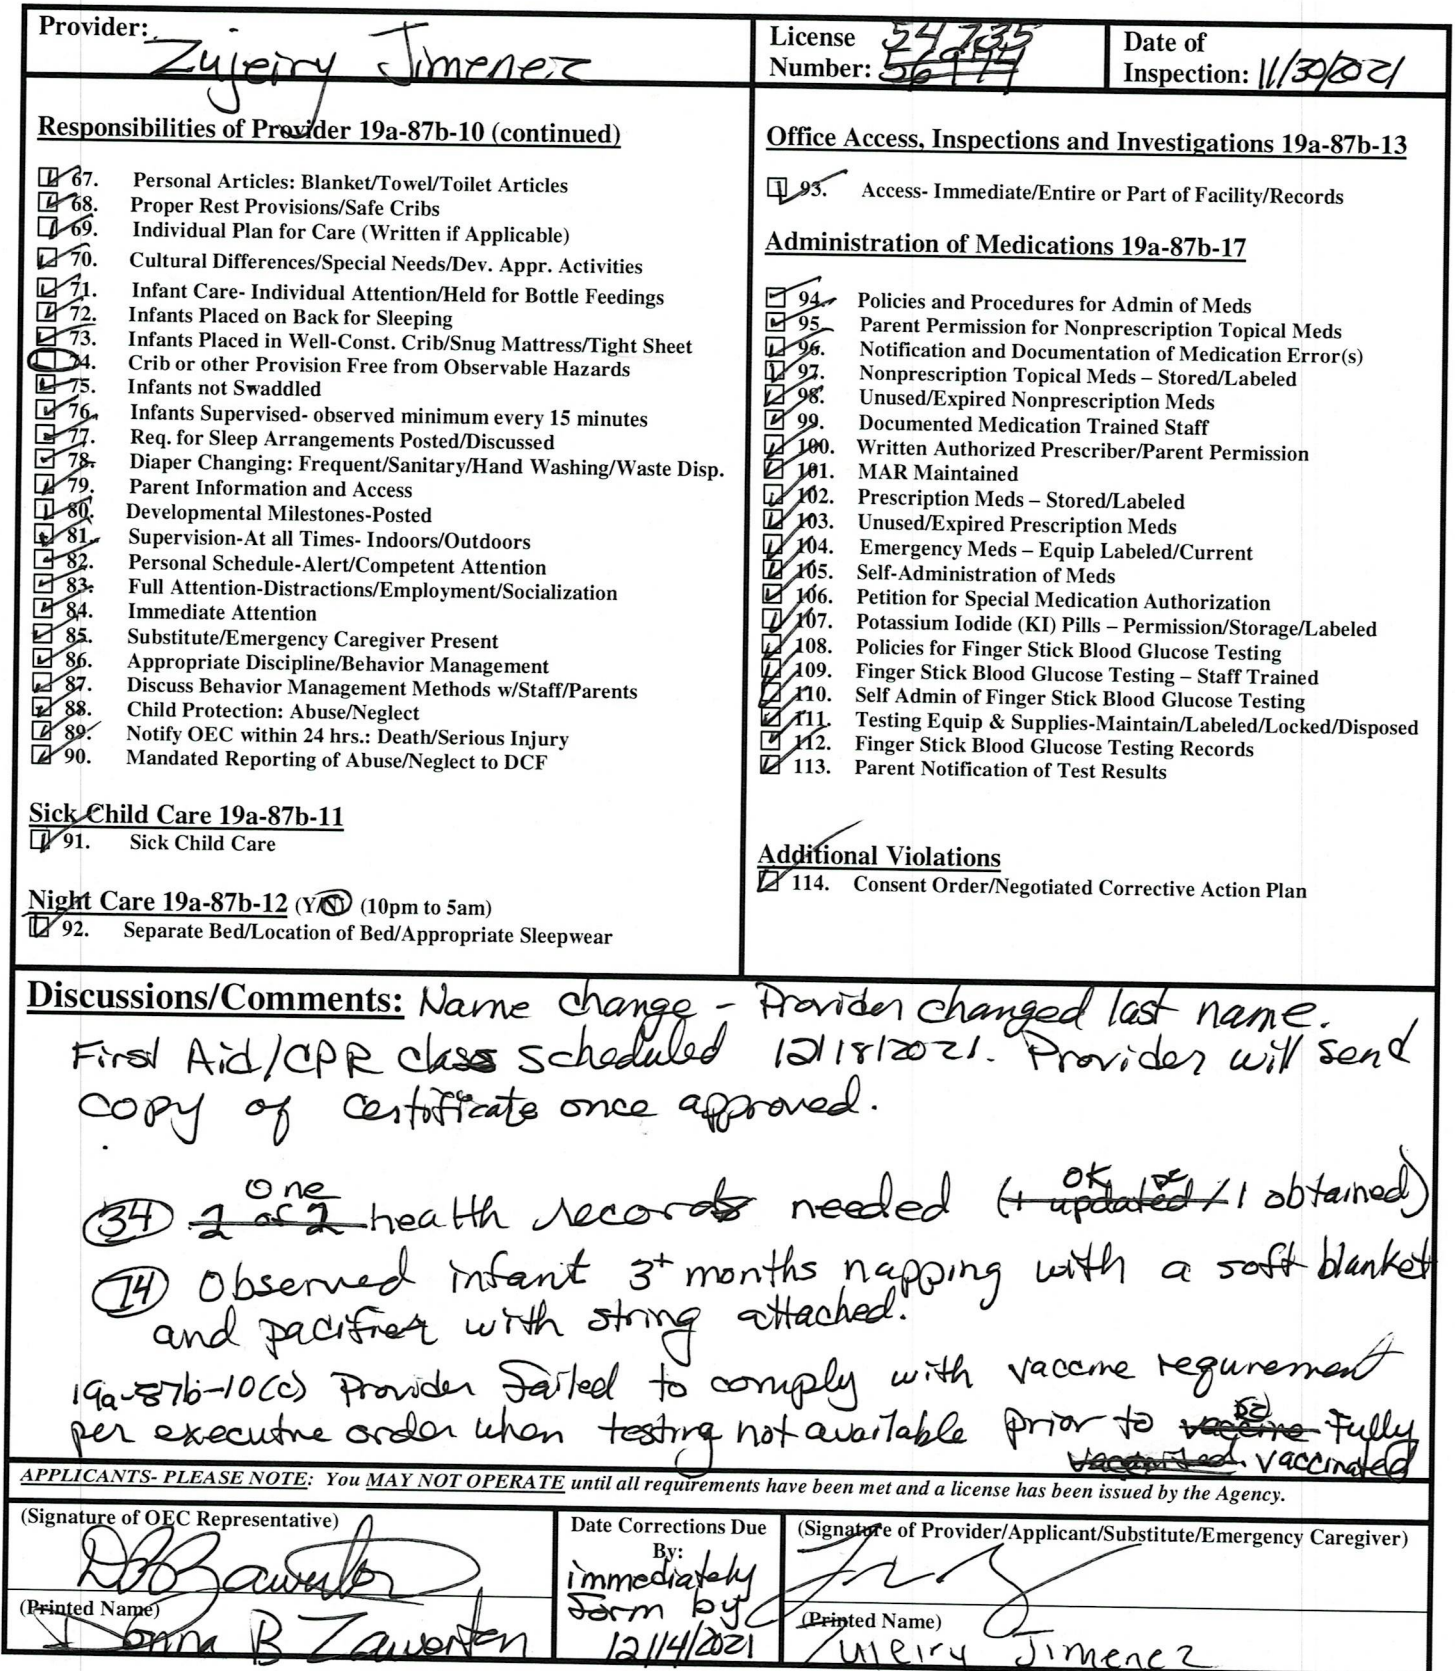 Provider: Zujeiry Jimenez
License Number: 54735 56974
Date of Inspection: 11/30/2021
Responsibilities of Provider 19a-87b-10 (continued)
67. Personal Articles: Blanket/Towel/Toilet Articles
68. Proper Rest Provisions/Safe Cribs
69. Individual Plan for Care (Written if Applicable)
70. Cultural Differences/Special Needs/Dev. Appr. Activities
71. Infant Care- Individual Attention/Held for Bottle Feedings
72. Infants Placed on Back for Sleeping
73. Infants Placed in Well-Const. Crib/Snug Mattress/Tight Sheet
74. Crib or other Provision Free from Observable Hazards
75. Infants not Swaddled
76. Infants Supervised- observed minimum every 15 minutes
77. Req. for Sleep Arrangements Posted/Discussed
78. Diaper Changing: Frequent/Sanitary/Hand Washing/Waste Disp.
79. Parent Information and Access
80. Developmental Milestones-Posted
81. Supervision-At all Times- Indoors/Outdoors
82. Personal Schedule-Alert/Competent Attention
83. Full Attention-Distractions/Employment/Socialization
84. Immediate Attention
85. Substitute/Emergency Caregiver Present
86. Appropriate Discipline/Behavior Management
87. Discuss Behavior Management Methods w/Staff/Parents
88. Child Protection: Abuse/Neglect
89. Notify OEC within 24 hrs.: Death/Serious Injury
90. Mandated Reporting of Abuse/Neglect to DCF
Sick Child Care 19a-87b-11
91. Sick Child Care
Night Care 19a-87b-12 (Y/N) (10pm to 5am)
92. Separate Bed/Location of Bed/Appropriate Sleepwear
Office Access, Inspections and Investigations 19a-87b-13
93. Access- Immediate/Entire or Part of Facility/Records
Administration of Medications 19a-87b-17
94. Policies and Procedures for Admin of Meds
95. Parent Permission for Nonprescription Topical Meds
96. Notification and Documentation of Medication Error(s)
97. Nonprescription Topical Meds – Stored/Labeled
98. Unused/Expired Nonprescription Meds
99. Documented Medication Trained Staff
100. Written Authorized Prescriber/Parent Permission
101. MAR Maintained
102. Prescription Meds – Stored/Labeled
103. Unused/Expired Prescription Meds
104. Emergency Meds – Equip Labeled/Current
105. Self-Administration of Meds
106. Petition for Special Medication Authorization
107. Potassium Iodide (KI) Pills – Permission/Storage/Labeled
108. Policies for Finger Stick Blood Glucose Testing
109. Finger Stick Blood Glucose Testing – Staff Trained
110. Self Admin of Finger Stick Blood Glucose Testing
111. Testing Equip & Supplies-Maintain/Labeled/Locked/Disposed
112. Finger Stick Blood Glucose Testing Records
113. Parent Notification of Test Results
Additional Violations
114. Consent Order/Negotiated Corrective Action Plan
Discussions/Comments: Name change - Provider changed last name.
First Aid/CPR class scheduled 12/18/2021. Provider will send
copy of certificate once approved.
One OK
34 2 of 2 health records needed (1 updated / 1 obtained)
74 Observed infant 3+ months napping with a soft blanket
and pacifier with string attached.
19a-87b-10(c) Provider failed to comply with vaccine requirement
per executive order when testing not available prior to vaccine fully
vaccinated. vaccinated
APPLICANTS- PLEASE NOTE: You MAY NOT OPERATE until all requirements have been met and a license has been issued by the Agency.
(Signature of OEC Representative)
(Printed Name)
Donna B Zawerton
Date Corrections Due
By:
immediately
form by
12/14/2021
(Signature of Provider/Applicant/Substitute/Emergency Caregiver)
(Printed Name)
Zujeiry Jimenez